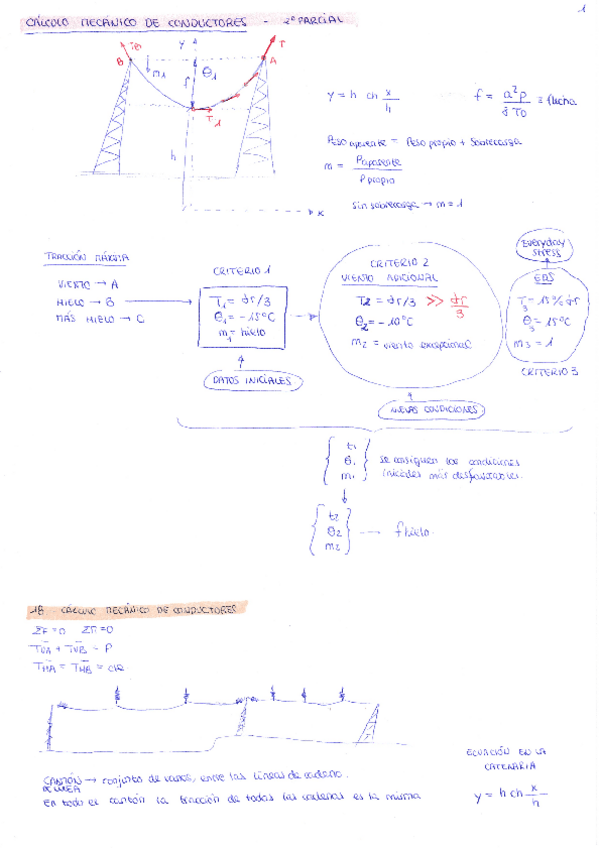 1
CÁLCULO MECÁNICO DE CONDUCTORES - 2º PARCIAL
y
T
B
A
m1
θ1
f
T1
h
x
y = h ch x/h
f = a²p / 8 T0 ≡ flecha
Peso aparente = Peso propio + Sobrecarga
m = Paparente / Ppropio
sin sobrecarga → m = 1
TRACCIÓN MÁXIMA
VIENTO → A
HIELO → B
MÁS HIELO → C
CRITERIO 1
T1 = σr/3
θ1 = -15ºC
m1 = hielo
DATOS INICIALES
CRITERIO 2
VIENTO ADICIONAL
T2 = σr/3 >> σr/3
θ2 = -10ºC
m2 = viento excepcional
NUEVAS CONDICIONES
Everyday stress
EDS
T3 = 15% σr
θ3 = 15ºC
m3 = 1
CRITERIO 3
t1
θ1
m1
se consiguen las condiciones
iniciales más desfavorables.
t2
θ2
m2
→ f hielo.
1B - CÁLCULO MECÁNICO DE CONDUCTORES
ΣF=0 ΣM=0
TVA + TVB = P
THA = THB = cte
CANTÓN → conjunto de vanos, entre las líneas de cadena.
DE LÍNEA
En todo el cantón la tracción de todas las cadenas es la misma
ECUACIÓN EN LA
CATENARIA
y = h ch x/h